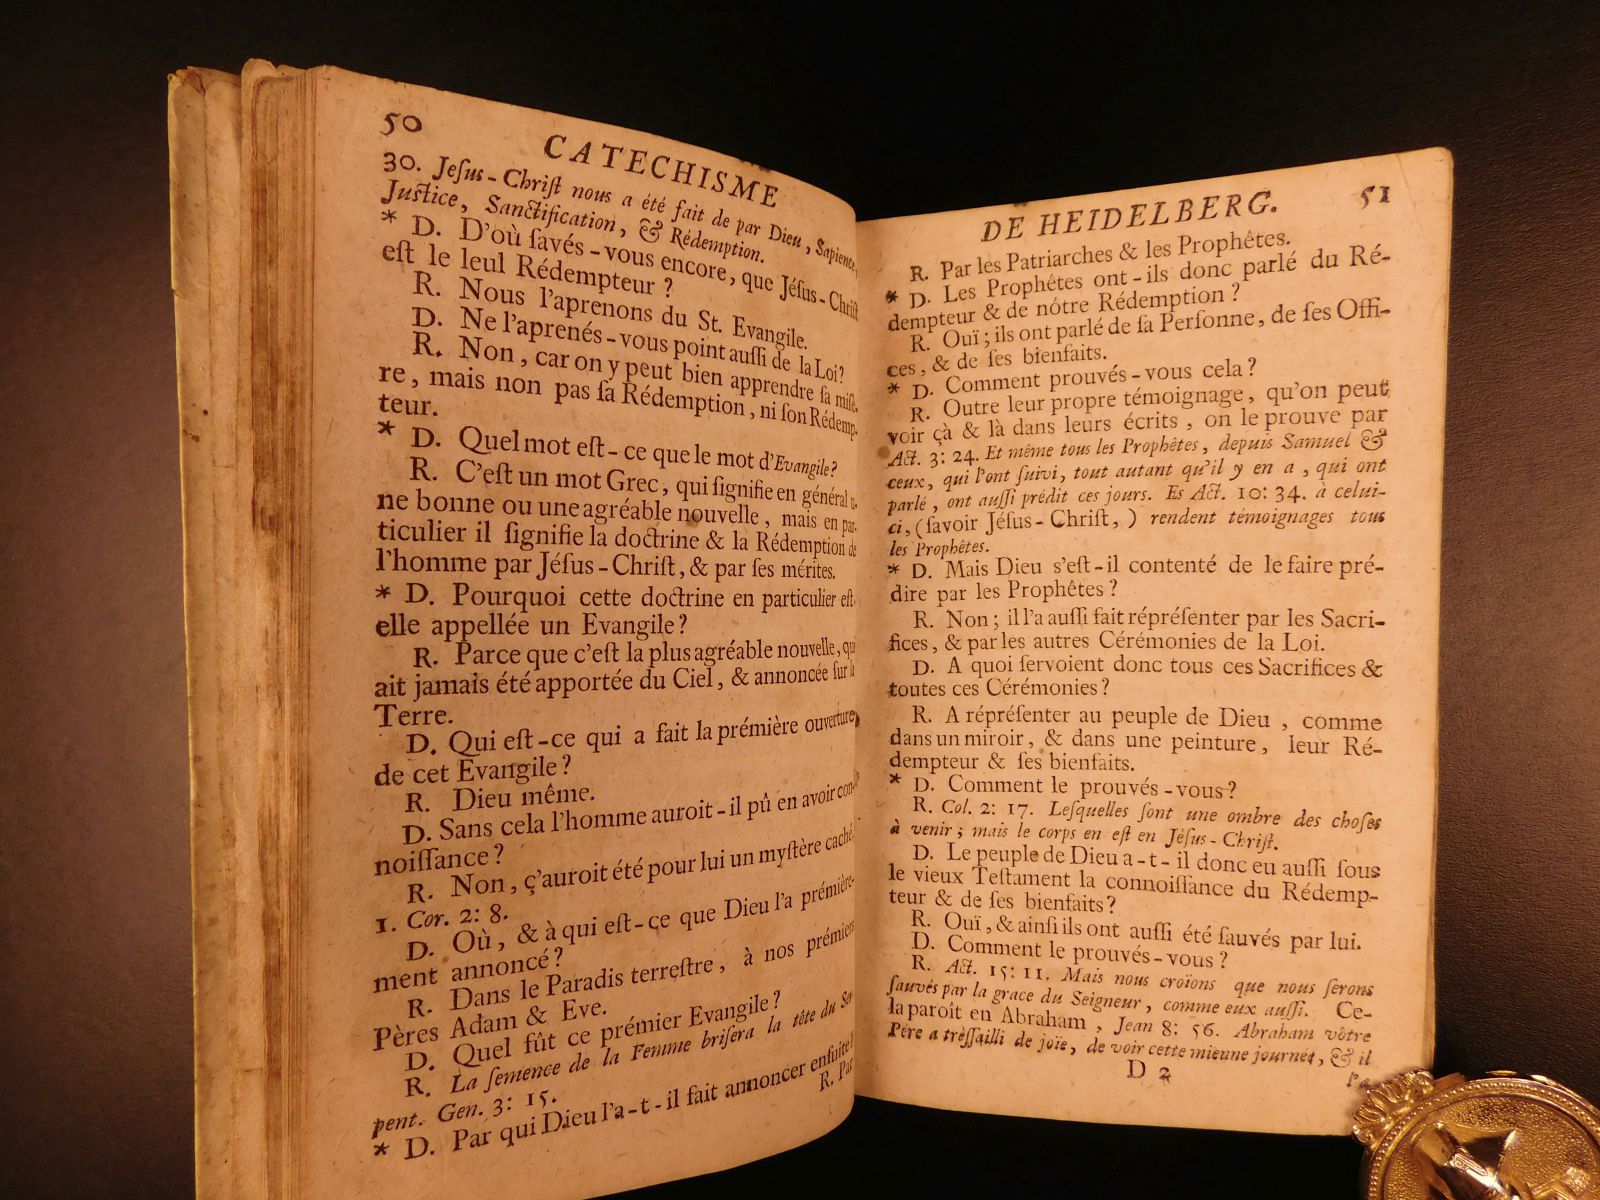 50
CATECHISME
30. Jeſus-Chriſt nous a été fait de par Dieu, Sapience,
Juſtice, Sanctification, & Rédemption.
* D. D'où ſavés-vous encore, que Jéſus-Chriſt
eſt le leul Rédempteur ?
R. Nous l'aprenons du St. Evangile.
D. Ne l'aprenés-vous point auſſi de la Loi?
R. Non, car on y peut bien apprendre ſa miſè-
re, mais non pas ſa Rédemption, ni ſon Rédemp-
teur.
* D. Quel mot eſt-ce que le mot d'Evangile?
R. C'eſt un mot Grec, qui ſignifie en général u-
ne bonne ou une agréable nouvelle, mais en par-
ticulier il ſignifie la doctrine & la Rédemption de
l'homme par Jéſus-Chriſt, & par ſes mérites.
* D. Pourquoi cette doctrine en particulier eſt-
elle appellée un Evangile?
R. Parce que c'eſt la plus agréable nouvelle, qui
ait jamais été apportée du Ciel, & annoncée ſur la
Terre.
D. Qui eſt-ce qui a fait la prémière ouverture
de cet Evangile?
R. Dieu même.
D. Sans cela l'homme auroit-il pû en avoir con-
noiſſance?
R. Non, ç'auroit été pour lui un myſtère caché
1. Cor. 2: 8.
D. Où, & à qui eſt-ce que Dieu l'a prémière-
ment annoncé?
R. Dans le Paradis terreſtre, à nos prémiers
Pères Adam & Eve.
D. Quel fût ce prémier Evangile?
R. La ſemence de la Femme briſera la tête du Ser-
pent. Gen. 3: 15.
* D. Par qui Dieu l'a-t-il fait annoncer enſuite?
R. Par
DE HEIDELBERG. 51
R. Par les Patriarches & les Prophêtes.
* D. Les Prophêtes ont-ils donc parlé du Ré-
dempteur & de nôtre Rédemption ?
R. Ouï; ils ont parlé de ſa Perſonne, de ſes Offi-
ces, & de ſes bienfaits.
* D. Comment prouvés-vous cela?
R. Outre leur propre témoignage, qu'on peut
voir çà & là dans leurs écrits, on le prouve par
Act. 3: 24. Et même tous les Prophêtes, depuis Samuel &
ceux, qui l'ont ſuivi, tout autant qu'il y en a, qui ont
parlé, ont auſſi prédit ces jours. Es Act. 10: 34. à celui-
ci, (ſavoir Jéſus-Chriſt,) rendent témoignages tous
les Prophêtes.
* D. Mais Dieu s'eſt-il contenté de le faire pré-
dire par les Prophêtes?
R. Non; il l'a auſſi fait répréſenter par les Sacri-
fices, & par les autres Cérémonies de la Loi.
D. A quoi ſervoient donc tous ces Sacrifices &
toutes ces Cérémonies?
R. A répréſenter au peuple de Dieu, comme
dans un miroir, & dans une peinture, leur Ré-
dempteur & ſes bienfaits.
* D. Comment le prouvés-vous?
R. Col. 2: 17. Leſquelles ſont une ombre des choſes
à venir; mais le corps en eſt en Jéſus-Chriſt.
D. Le peuple de Dieu a-t-il donc eu auſſi ſous
le vieux Teſtament la connoiſſance du Rédemp-
teur & de ſes bienfaits?
R. Ouï, & ainſi ils ont auſſi été ſauvés par lui.
D. Comment le prouvés-vous?
R. Act. 15: 11. Mais nous croïons que nous ſerons
ſauvés par la grace du Seigneur, comme eux auſſi. Ce-
la paroît en Abraham, Jean 8: 56. Abraham vôtre
Père a trèſſailli de joïe, de voir cette mieune journée, & il
D 2